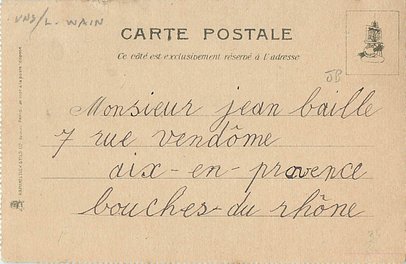 UNS/L. WAIN
CARTE POSTALE
Ce côté est exclusivement réservé à l'adresse
JB
Monsieur jean baille
7 rue vendôme
aix-en-provence
bouches-du rhône